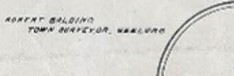 ROBERT BALDING
TOWN SURVEYOR, GEELONG